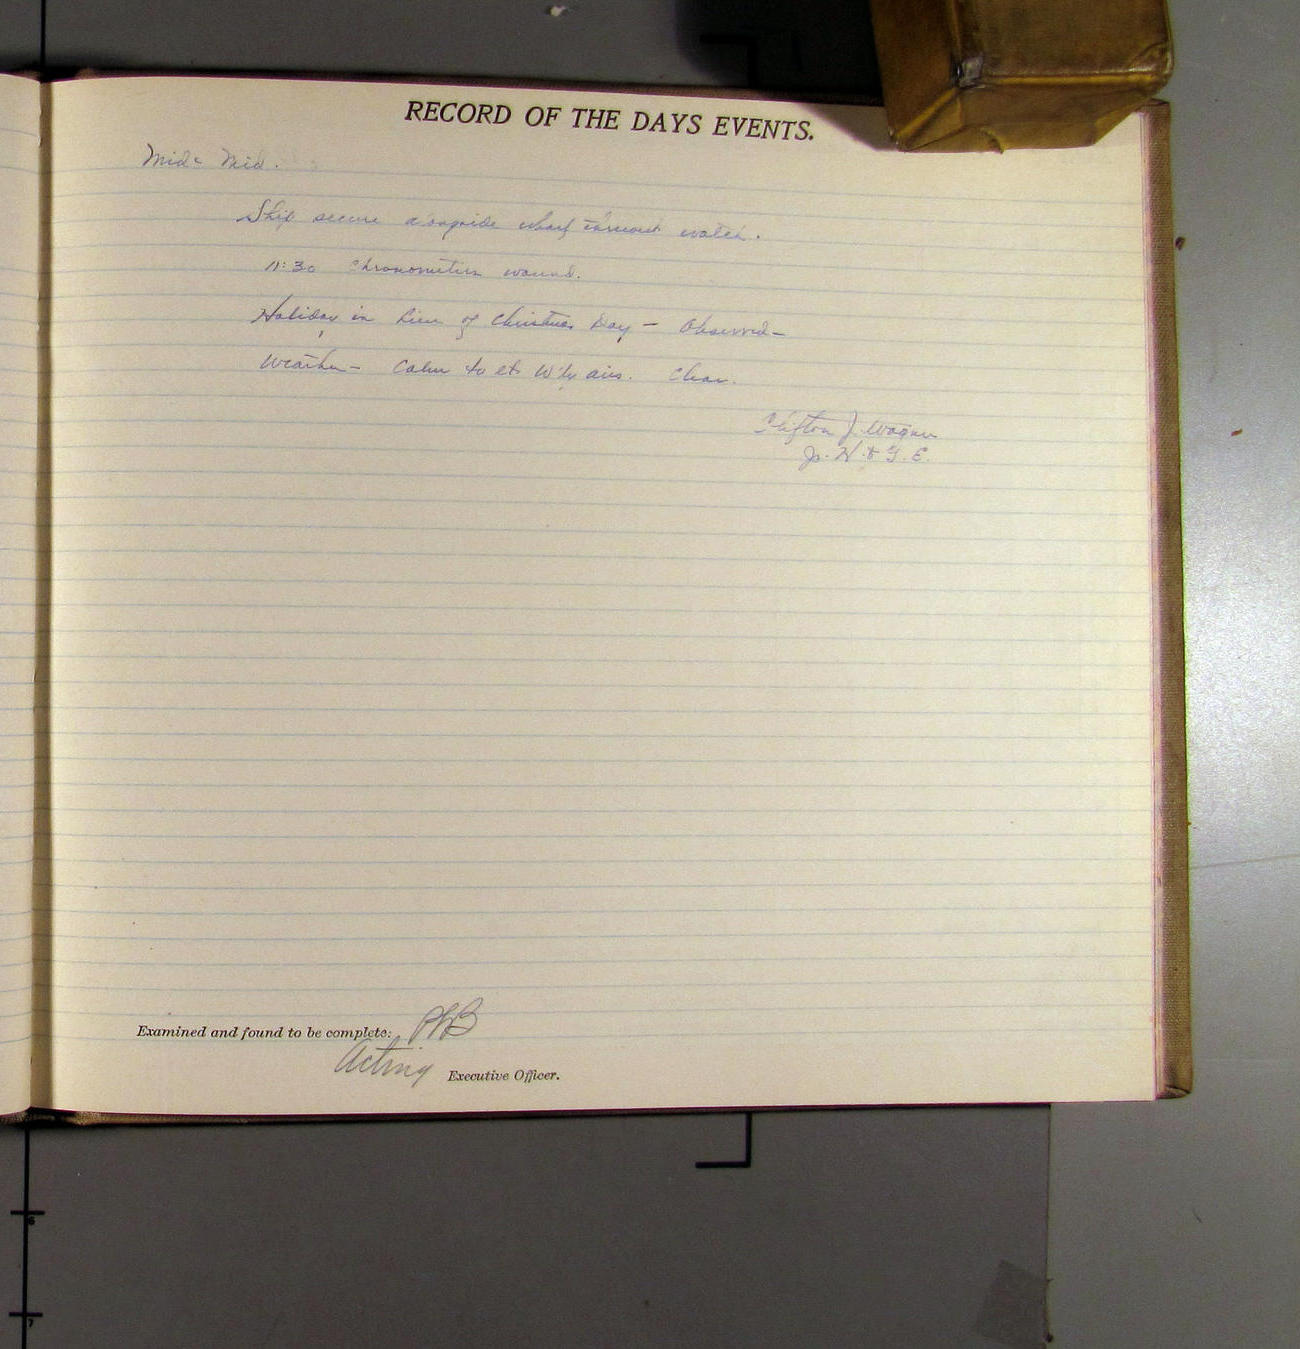 RECORD OF THE DAYS EVENTS.
Mid - Mid.
Ship secure alongside wharf throuout watch.
11:30 Chronometers wound.
Holiday in lieu of Christmas Day — Observed —
Weather — Calm to lt W'ly airs. Clear.
Clifton J. Wagner
Jr. H. & G. E.
Examined and found to be complete:
Acting Executive Officer.
6
7